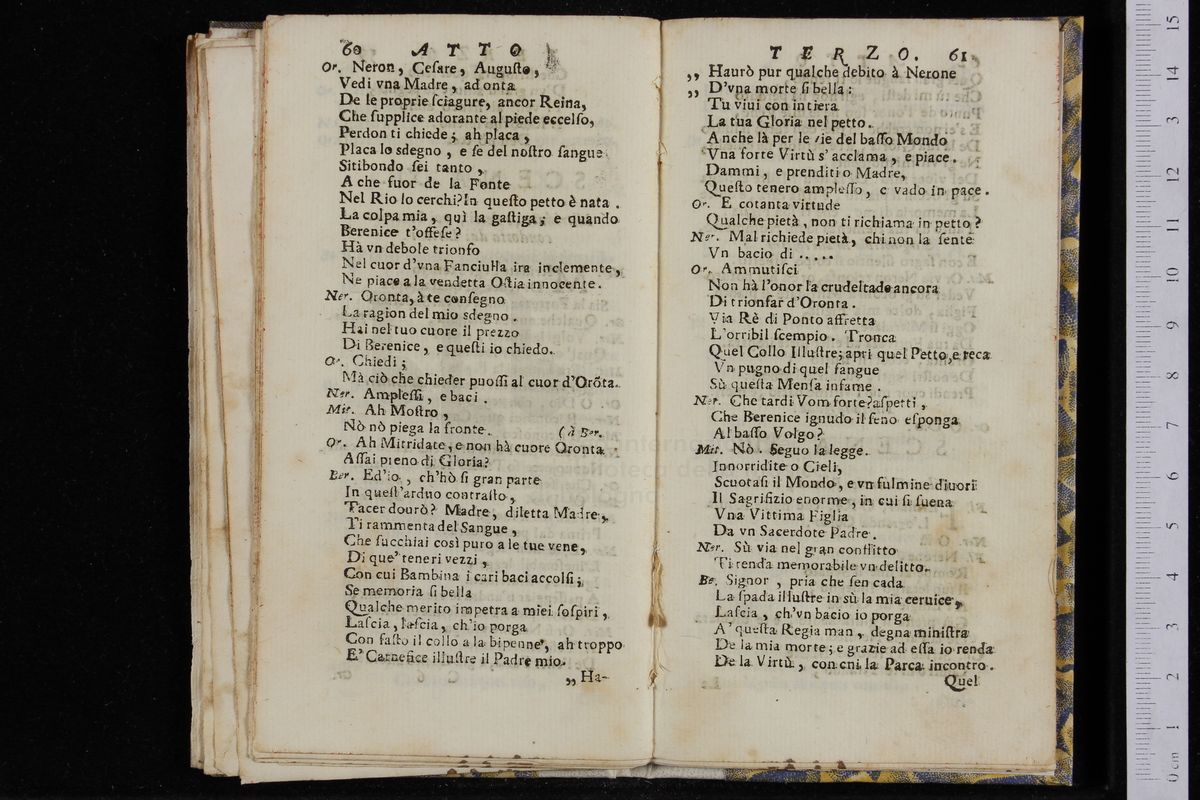 60 ATTO
Or. Neron, Ceſare, Auguſto,
Vedi vna Madre, ad onta
De le proprie ſciagure, ancor Reina,
Che ſupplice adorante al piede eccelſo,
Perdon ti chiede; ah placa,
Placa lo sdegno, e ſe del noſtro ſangue
Sitibondo ſei tanto,
A che fuor de la Fonte
Nel Rio lo cerchi? In queſto petto è nata.
La colpa mia, quì la gaſtiga; e quando
Berenice t'offeſe?
Hà vn debole trionfo
Nel cuor d'vna Fanciulla ira inclemente,
Ne piace a la vendetta Oſtia innocente.
Ner. Oronta, à te conſegno
La ragion del mio sdegno.
Hai nel tuo cuore il prezzo
Di Berenice, e queſti io chiedo.
Or. Chiedi;
Mà ciò che chieder puoſſi al cuor d'Orõta.
Ner. Ampleſſi, e baci.
Mit. Ah Moſtro,
Nò nò piega la fronte. (à Ber.
Or. Ah Mitridate, e non hà cuore Oronta
Aſſai pieno di Gloria?
Ber. Ed'io, ch'hò ſi gran parte
In queſt'arduo contraſto,
Tacer dourò? Madre, diletta Madre,
Ti rammenta del Sangue,
Che ſucchiai così puro a le tue vene,
Di que' teneri vezzi,
Con cui Bambina i cari baci accolſi;
Se memoria ſi bella
Qualche merito impetra a miei ſoſpiri,
Laſcia, laſcia, ch'io porga
Con faſto il collo a la bipenne, ah troppo
E' Carnefice illuſtre il Padre mio.
„ Ha-
TERZO. 61
„ Haurò pur qualche debito à Nerone
„ D'vna morte ſi bella:
Tu viui con intiera
La tua Gloria nel petto.
Anche là per le vie del baſſo Mondo
Vna forte Virtù s'acclama, e piace.
Dammi, e prenditi o Madre,
Queſto tenero ampleſſo, e vado in pace.
Or. E cotanta virtude
Qualche pietà, non ti richiama in petto?
Ner. Mal richiede pietà, chi non la ſente
Vn bacio di .....
Or. Ammutiſci
Non hà l'onor la crudeltade ancora
Di trionfar d'Oronta.
Via Rè di Ponto affretta
L'orribil ſcempio. Tronca
Quel Collo Illuſtre; apri quel Petto, e reca
Vn pugno di quel ſangue
Sù queſta Menſa infame.
Ner. Che tardi Vom forte? aſpetti,
Che Berenice ignudo il ſeno eſponga
Al baſſo Volgo?
Mit. Nò. Seguo la legge.
Innorridite o Cieli,
Scuotaſi il Mondo, e vn fulmine diuori
Il Sagrifizio enorme, in cui ſi ſuena
Vna Vittima Figlia
Da vn Sacerdote Padre.
Ner. Sù via nel gran conflitto
Ti renda memorabile vn delitto.
Be. Signor, pria che ſen cada
La ſpada illuſtre in sù la mia ceruice,
Laſcia, ch'vn bacio io porga
A' queſta Regia man, degna miniſtra
De la mia morte; e grazie ad eſſa io renda
De la Virtù, con cni la Parca incontro.
Quel